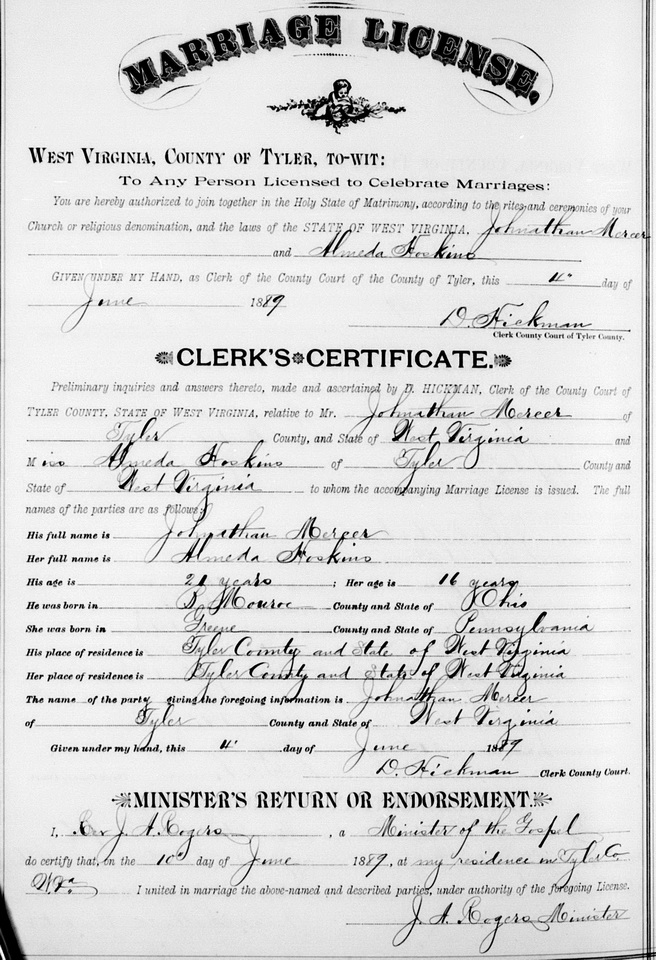 MARRIAGE LICENSE.
WEST VIRGINIA, COUNTY OF TYLER, TO-WIT:
To Any Person Licensed to Celebrate Marriages:
You are hereby authorized to join together in the Holy State of Matrimony, according to the rites and ceremonies of your
Church or religious denomination, and the laws of the STATE OF WEST VIRGINIA, Johnathan Mercer
and Almeda Hoskins
GIVEN UNDER MY HAND, as Clerk of the County Court of the County of Tyler, this 4" day of
June 1889
D. Hickman
Clerk County Court of Tyler County.
CLERK'S CERTIFICATE.
Preliminary inquiries and answers thereto, made and ascertained by D. HICKMAN, Clerk of the County Court of
TYLER COUNTY, STATE OF WEST VIRGINIA, relative to Mr. Johnathan Mercer of
Tyler County, and State of West Virginia and
Miss Almeda Hoskins of Tyler County and
State of West Virginia to whom the accompanying Marriage License is issued. The full
names of the parties are as follows:
His full name is Johnathan Mercer
Her full name is Almeda Hoskins
His age is 21 years ; Her age is 16 years
He was born in Monroe County and State of Ohio
She was born in Greene County and State of Pennsylvania
His place of residence is Tyler County and State of West Virginia
Her place of residence is Tyler County and State of West Virginia
The name of the party giving the foregoing information is Johnathan Mercer
of Tyler County and State of West Virginia
Given under my hand, this 4" day of June 1889
D. Hickman Clerk County Court.
MINISTER'S RETURN OR ENDORSEMENT.
I, Rev J. A. Rogers, a Minister of the Gospel
do certify that, on the 10" day of June 1889, at my residence in Tyler Co
W Va I united in marriage the above-named and described parties, under authority of the foregoing License.
J. A. Rogers Minister